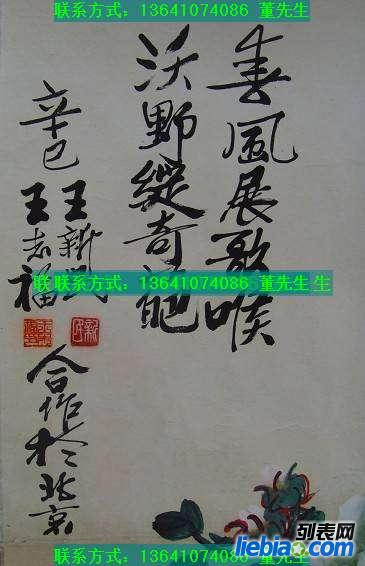 联系方式：13641074086 董先生
春风展歌喉
沃野纵奇葩
辛巳
王新民
王志福
合作於北京
联系方式：13641074086 董先生生
列表网
liebiao.com
联系方式：13641074086 董先生